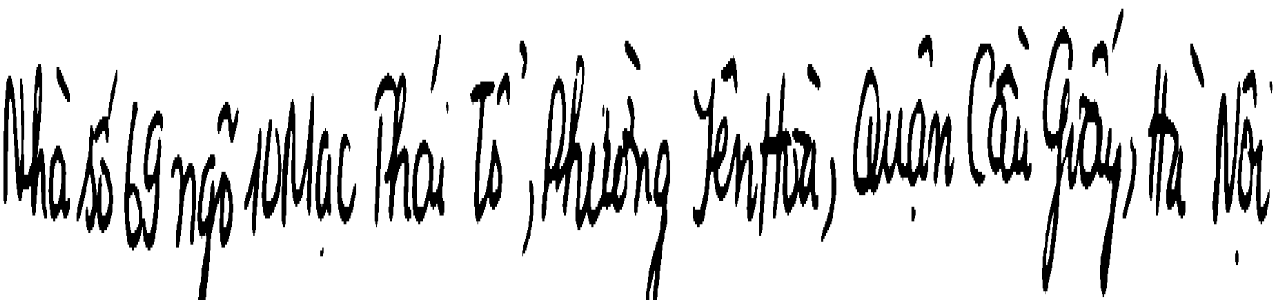 Nhà số 69 ngõ 10 Mạc Thái Tổ, Phường Yên Hoà, Quận Cầu Giấy, Hà Nội